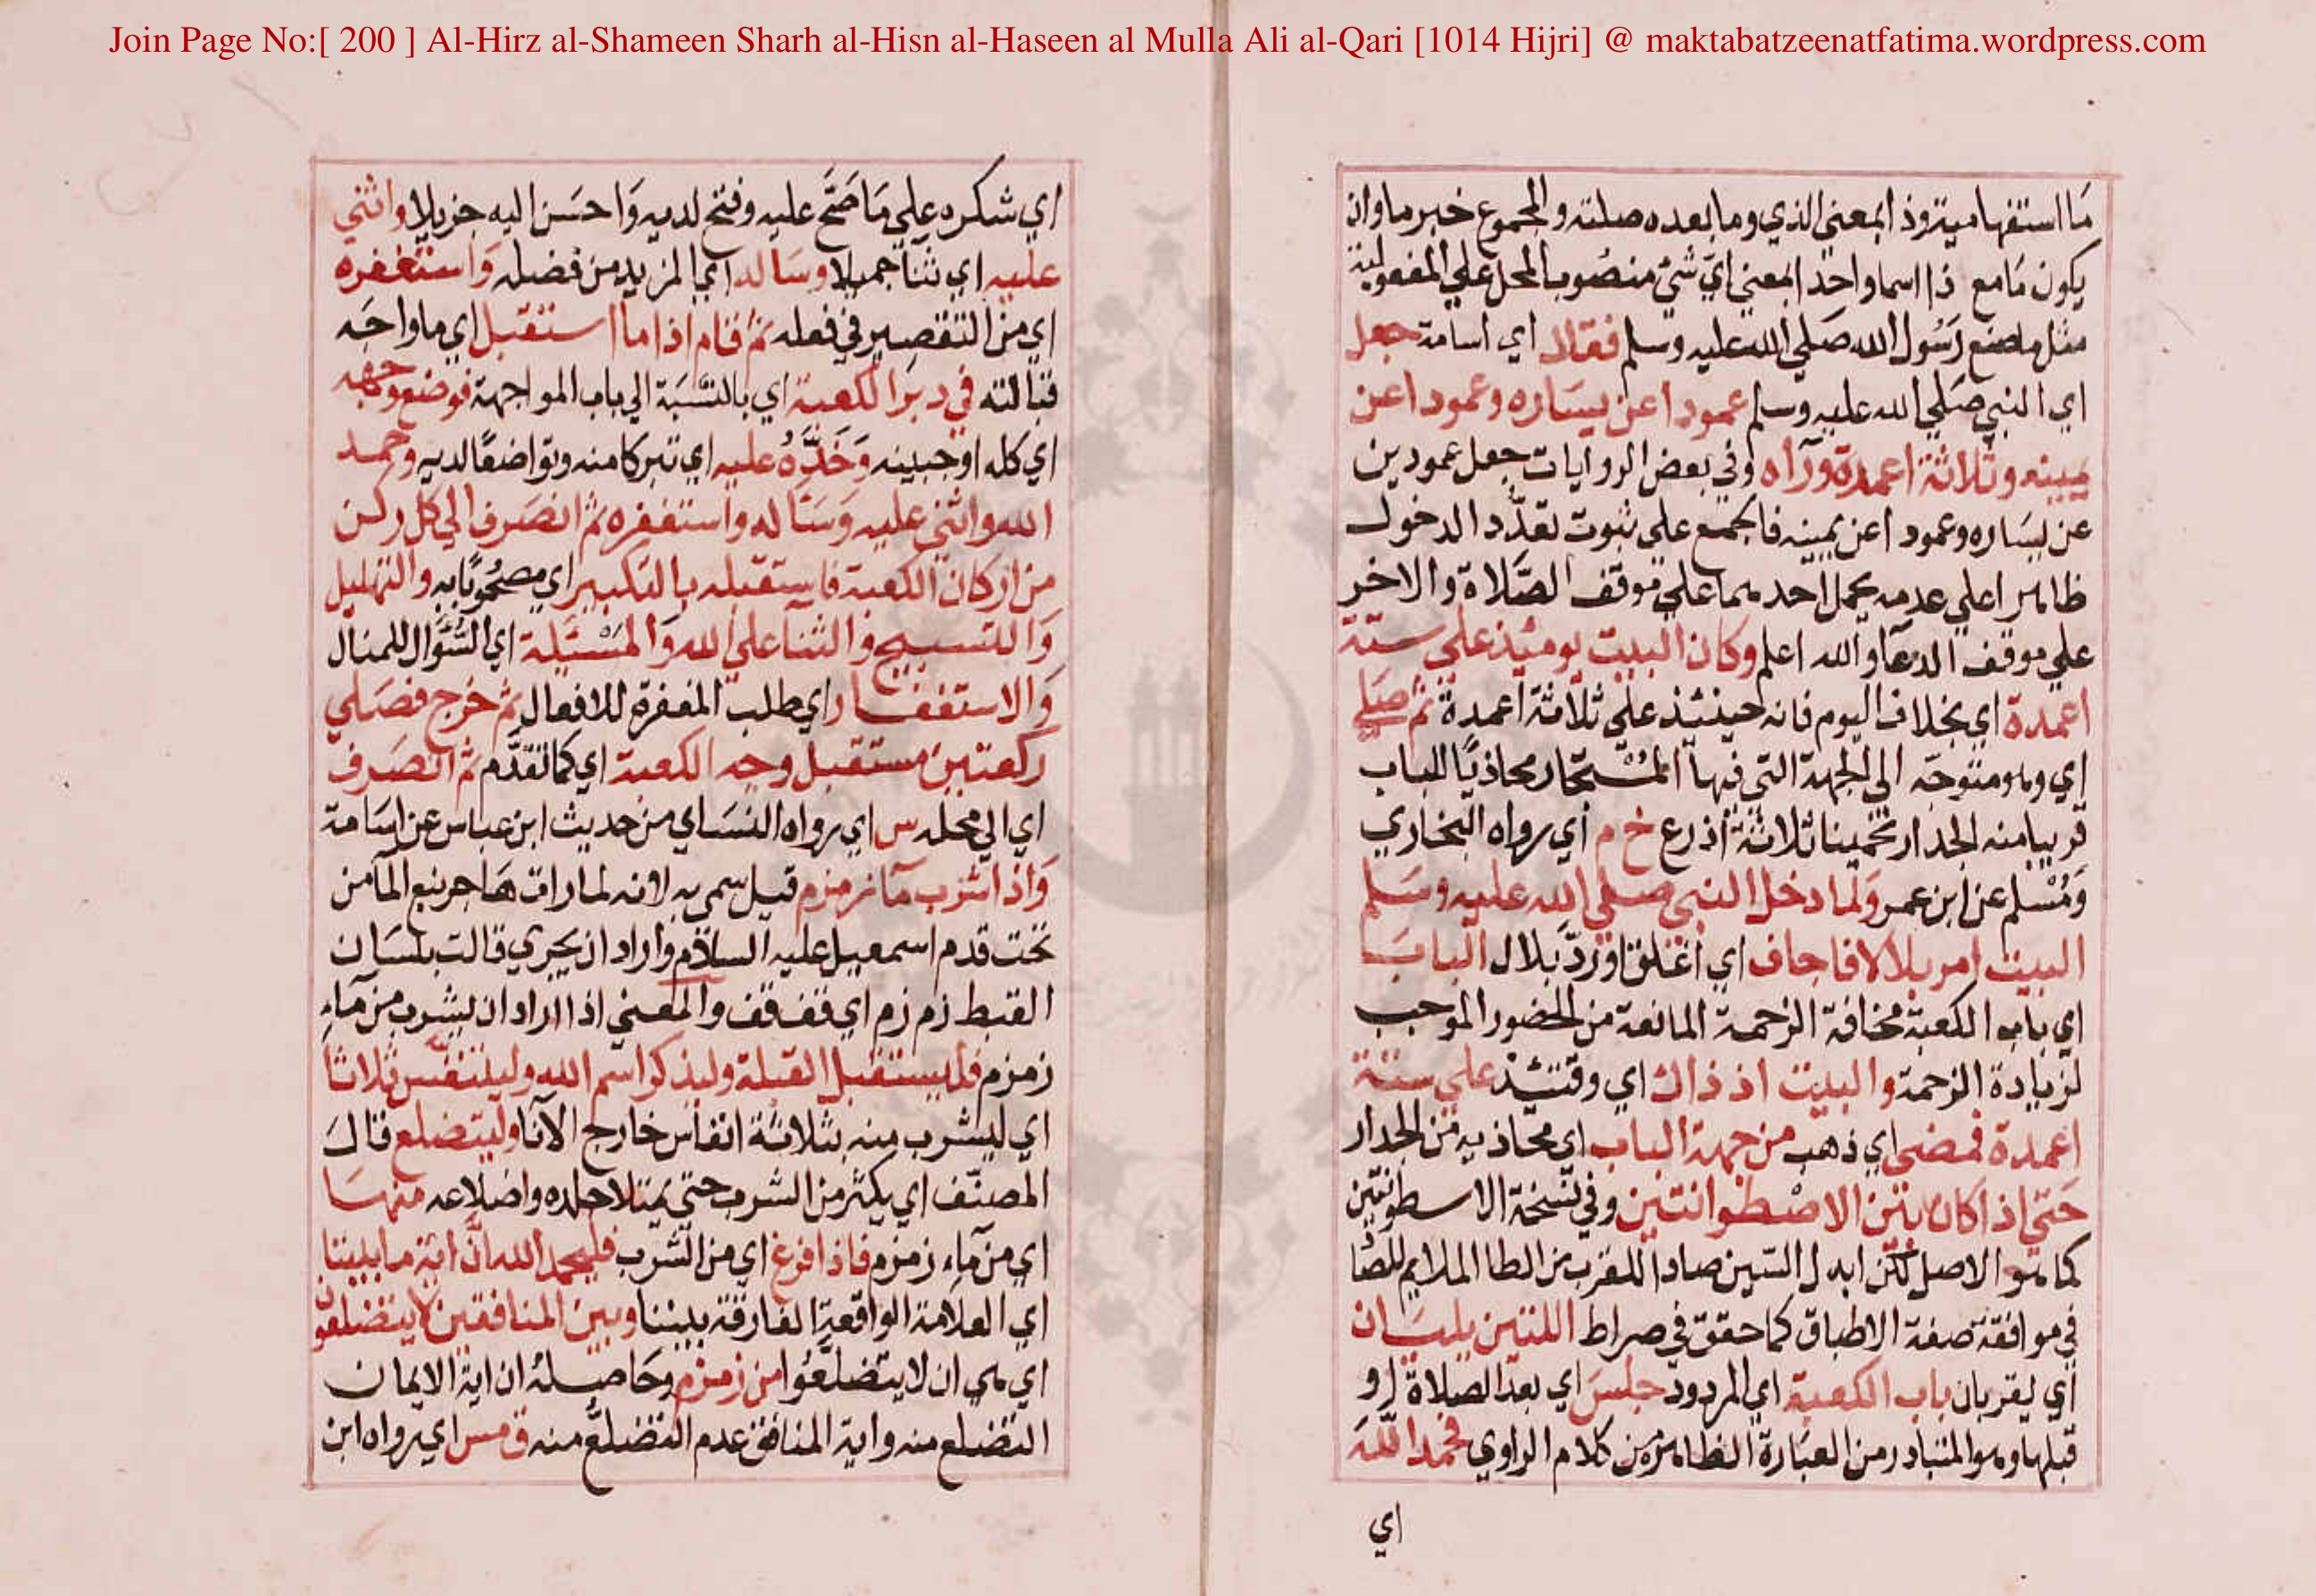 Join Page No:[ 200 ] Al-Hirz al-Shameen Sharh al-Hisn al-Haseen al Mulla Ali al-Qari [1014 Hijri] @ maktabatzeenatfatima.wordpress.com
مَا استفهامية وذا بمعني الذي وما بعده صلته والمجموع خبر ما وان
يكون مَا مع ذا اسما واحدا بمعني ايّ شئ منصُوب المحل علي المفعولية
مثل ما صنع رَسُول الله صَلي الله عليه وسلم فقال اي اسامة جعل
اي النبي صَلي الله عليه وسلم عمودا عن يسَاره وعمودا عن
يمينه وثلاثة اعمدة ورآه وفي بعض الروايات جعل عمودين
عن يسَاره وعمودا عن يمينه فالجمع علي ثبوت تعدّد الدخول
ظاهر اعلي عدمه يحمل احدهما علي موقف الصّلاة والاخر
علي موقف الدعآ والله اعلم وكان البيت يومئذ علي ستة
اعمدة اي بخلاف اليوم فانه حينئذ علي ثلاثة اعمدة ثم صَلي
اي وهو متوجّه الي الجهة التي فيها المُسْتجار محاذيًا للباب
قريبا منه الجدار تخمينا ثلاثة اذرع خ م اي رواه البخاري
وَمُسْلم عن ابن عمر وَلما دخل النبي صلي الله عليه وسَلم
البيت امر بلالا فاجاف اي اغلق اورَدّ بلال البابَ
اي باب الكعبة مخافة الزحمة المانعة من الحضور الموجب
لزيادة الزحمة والبيت اذ ذاك اي وقتئذ علي ستة
اعمدة فمضي اي ذهب من جهة الباب اي محاذيه من الجدار
حَتي اذا كان بَين الاصْطوانتين وفي نسخة الاسطوانتين
كما هو الاصل لكن ابدل السّين صادا للقرب من الطا الملايم للصّا
في موافقة صفة الاطباق كما حقق في صراط اللتين يليَان
اي يقربان باب الكعبة اي المردود جلسَ اي بعد الصلاة او
قبلها وهو المتبادر من العبَارة الظاهرة من كلام الراوي فحمد اللهَ
اي
اي شكره علي مَا صَحّ عليه وفتح لديه وَاحسَن اليه جزيلا واثني
عليه اي ثنا جميلا وسَاله اي المزيد من فضله وَاستغفره
اي من التقصير في فعله ثم قام اذا ما استقبل اي ما واجَه
قبالته في دبرَ الكعبة اي بالنّسبَة الي باب المواجهة فوضع وجهه
اي كله او جبينه وَخَدَّهُ عليه اي تبركا منه وتواضعًا لديه وحمد
الله واثني عليه وَسَاله واستغفره ثم انصَرف الي كل ركن
من اركان الكعبة فاستقبله بالتكبير اي مصحُوبًا به والتهليل
وَالتسبيح والثنا علي الله وَالمَسْئلة اي السُّؤال للمنال
وَالاستغفار اي طلب المغفرة للافعال ثم خرج فصَلي
ركعتين مستقبل وجه الكعبة اي كما تقدّم ثم انصَرف
اي الي محله س اي رواه النسَاي من حديث ابن عباس عن اسَامة
وَاذا شرب مآ زمزم قيل سمي به لانه لما رات هَاجر نبع المآ من
تحت قدم اسمعيل عليه السلام واراد ان يجري قالت بلسَان
القبط زم زم اي قف قف والمعني اذا اراد ان يشرب من مآء
زمزم فليستقبل القبلة وليذكر اسم الله وليتنفّس ثلاثا
اي ليشرب منه بثلاثة انفاس خارج الانآ وليتضلع قالَ
المصنّف اي يكثر من الشرب حتي يمتلا جلده واضلاعه منهَا
اي من مآء زمزم فاذا فرغ اي من الشرب فليحمد الله انّ اية ما بيننا
اي العلامة الواقعة الفارقة بيننا وبين المنافقين لا يتضلعون
اي هي ان لا يتضلّعُوا من زمزم وحَاصِلهُ ان اية الايمان
التضلع منه واية المنافق عدم التضلُّع منه ق مس اي رواه ابن